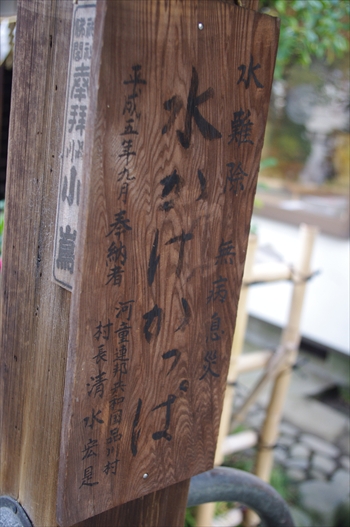 水難除 無病息災
水かけかっぱ
平成五年九月 奉納者 河童連邦共和国品川村
村長 清水宏是
奉拝
小嶌